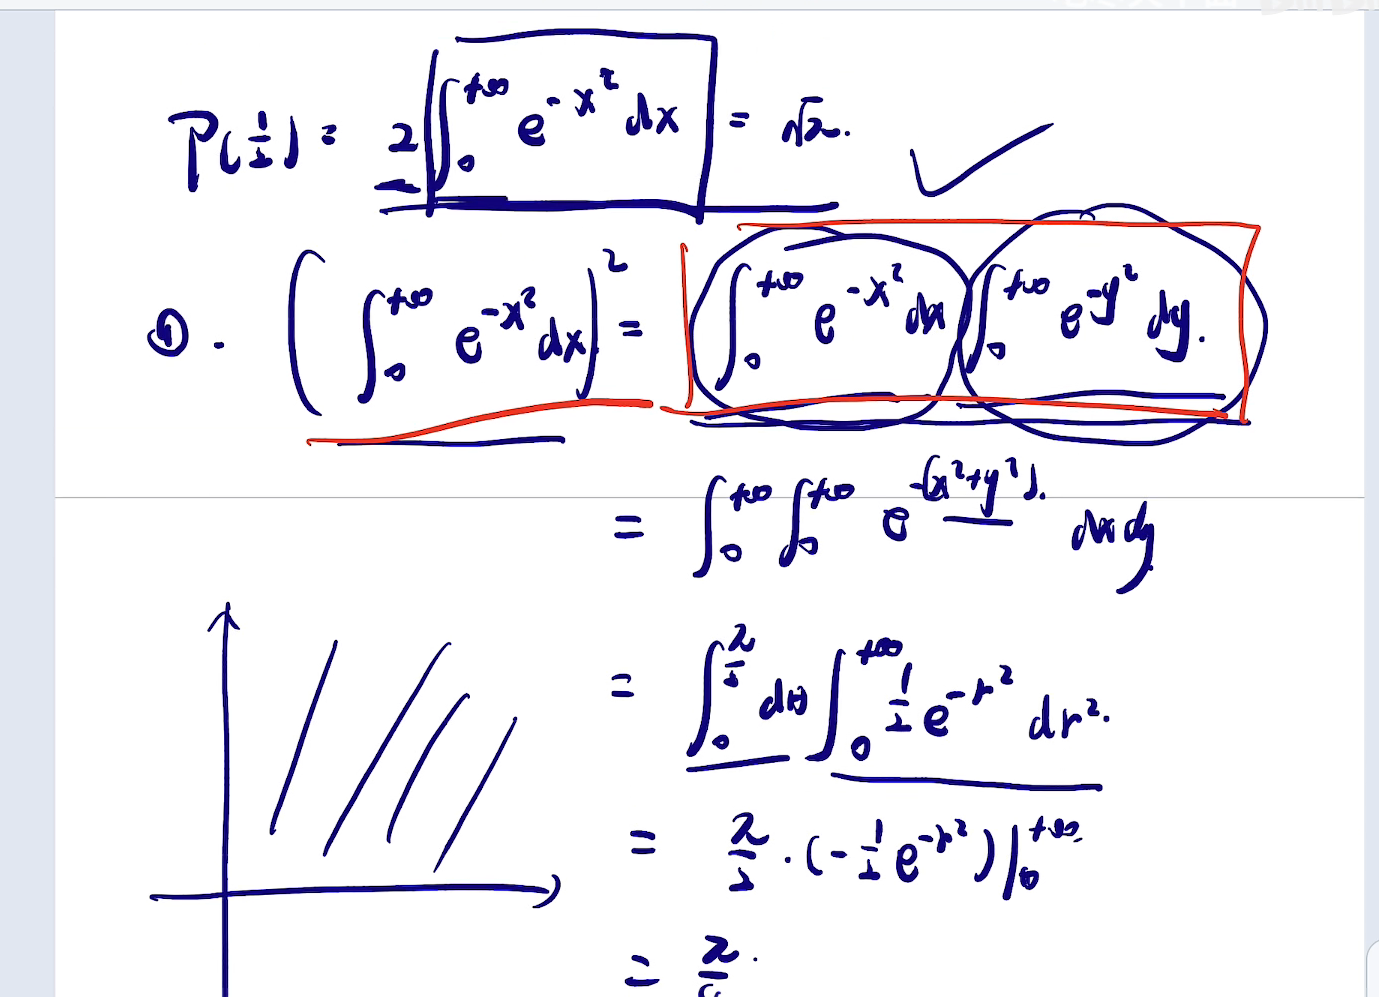 Γ(1/2) = 2 ∫₀^{+∞} e^{-x²} dx = √π.
①. (∫₀^{+∞} e^{-x²} dx)² = ∫₀^{+∞} e^{-x²} dx ∫₀^{+∞} e^{-y²} dy.
= ∫₀^{+∞} ∫₀^{+∞} e^{-(x²+y²)}. dx dy
= ∫₀^{π/2} dθ ∫₀^{+∞} 1/2 e^{-r²} dr².
= π/2 · (-1/2 e^{-r²}) |₀^{+∞}
= π/4.